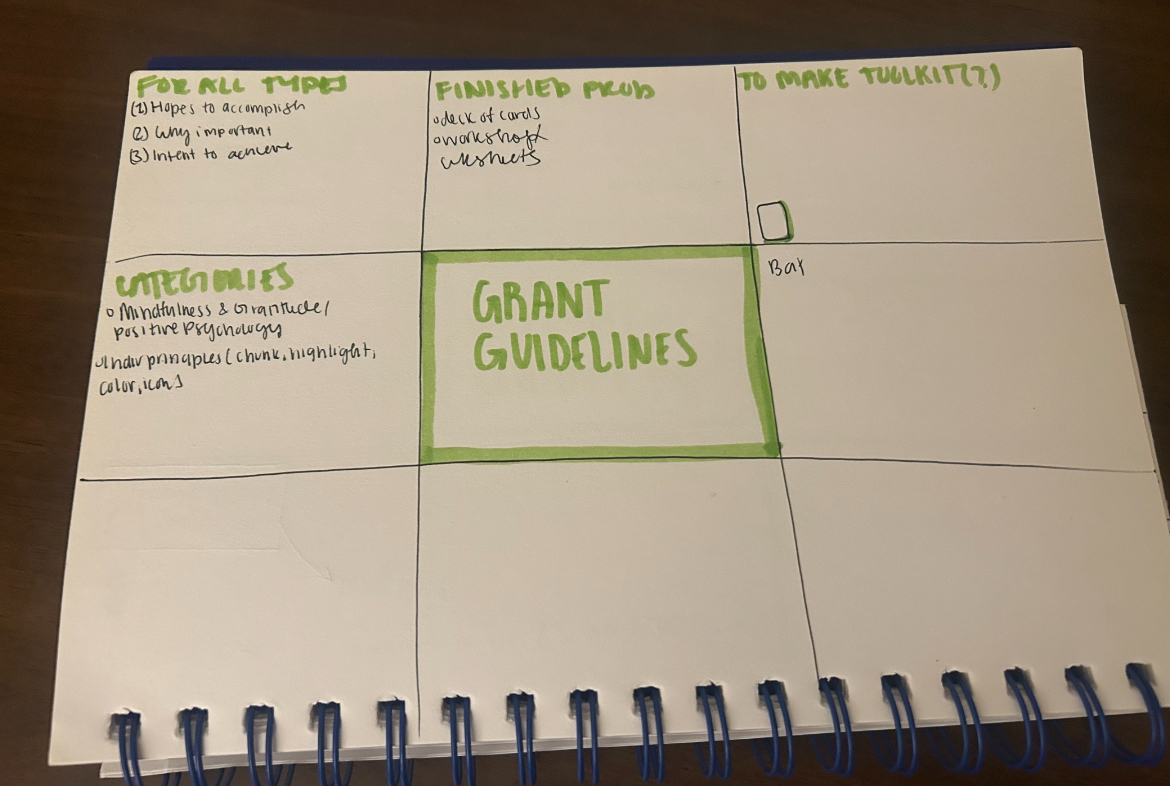 FOR ALL TYPES
(1) Hopes to accomplish
(2) Why important
(3) Intent to achieve
FINISHED PROD
o deck of cards
o workshop
wksheets
TO MAKE TOOLKIT(?)
CATEGORIES
o Mindfulness & Gratitude/
positive Psychology
principles (chunk, highlight,
color, icon)
GRANT
GUIDELINES